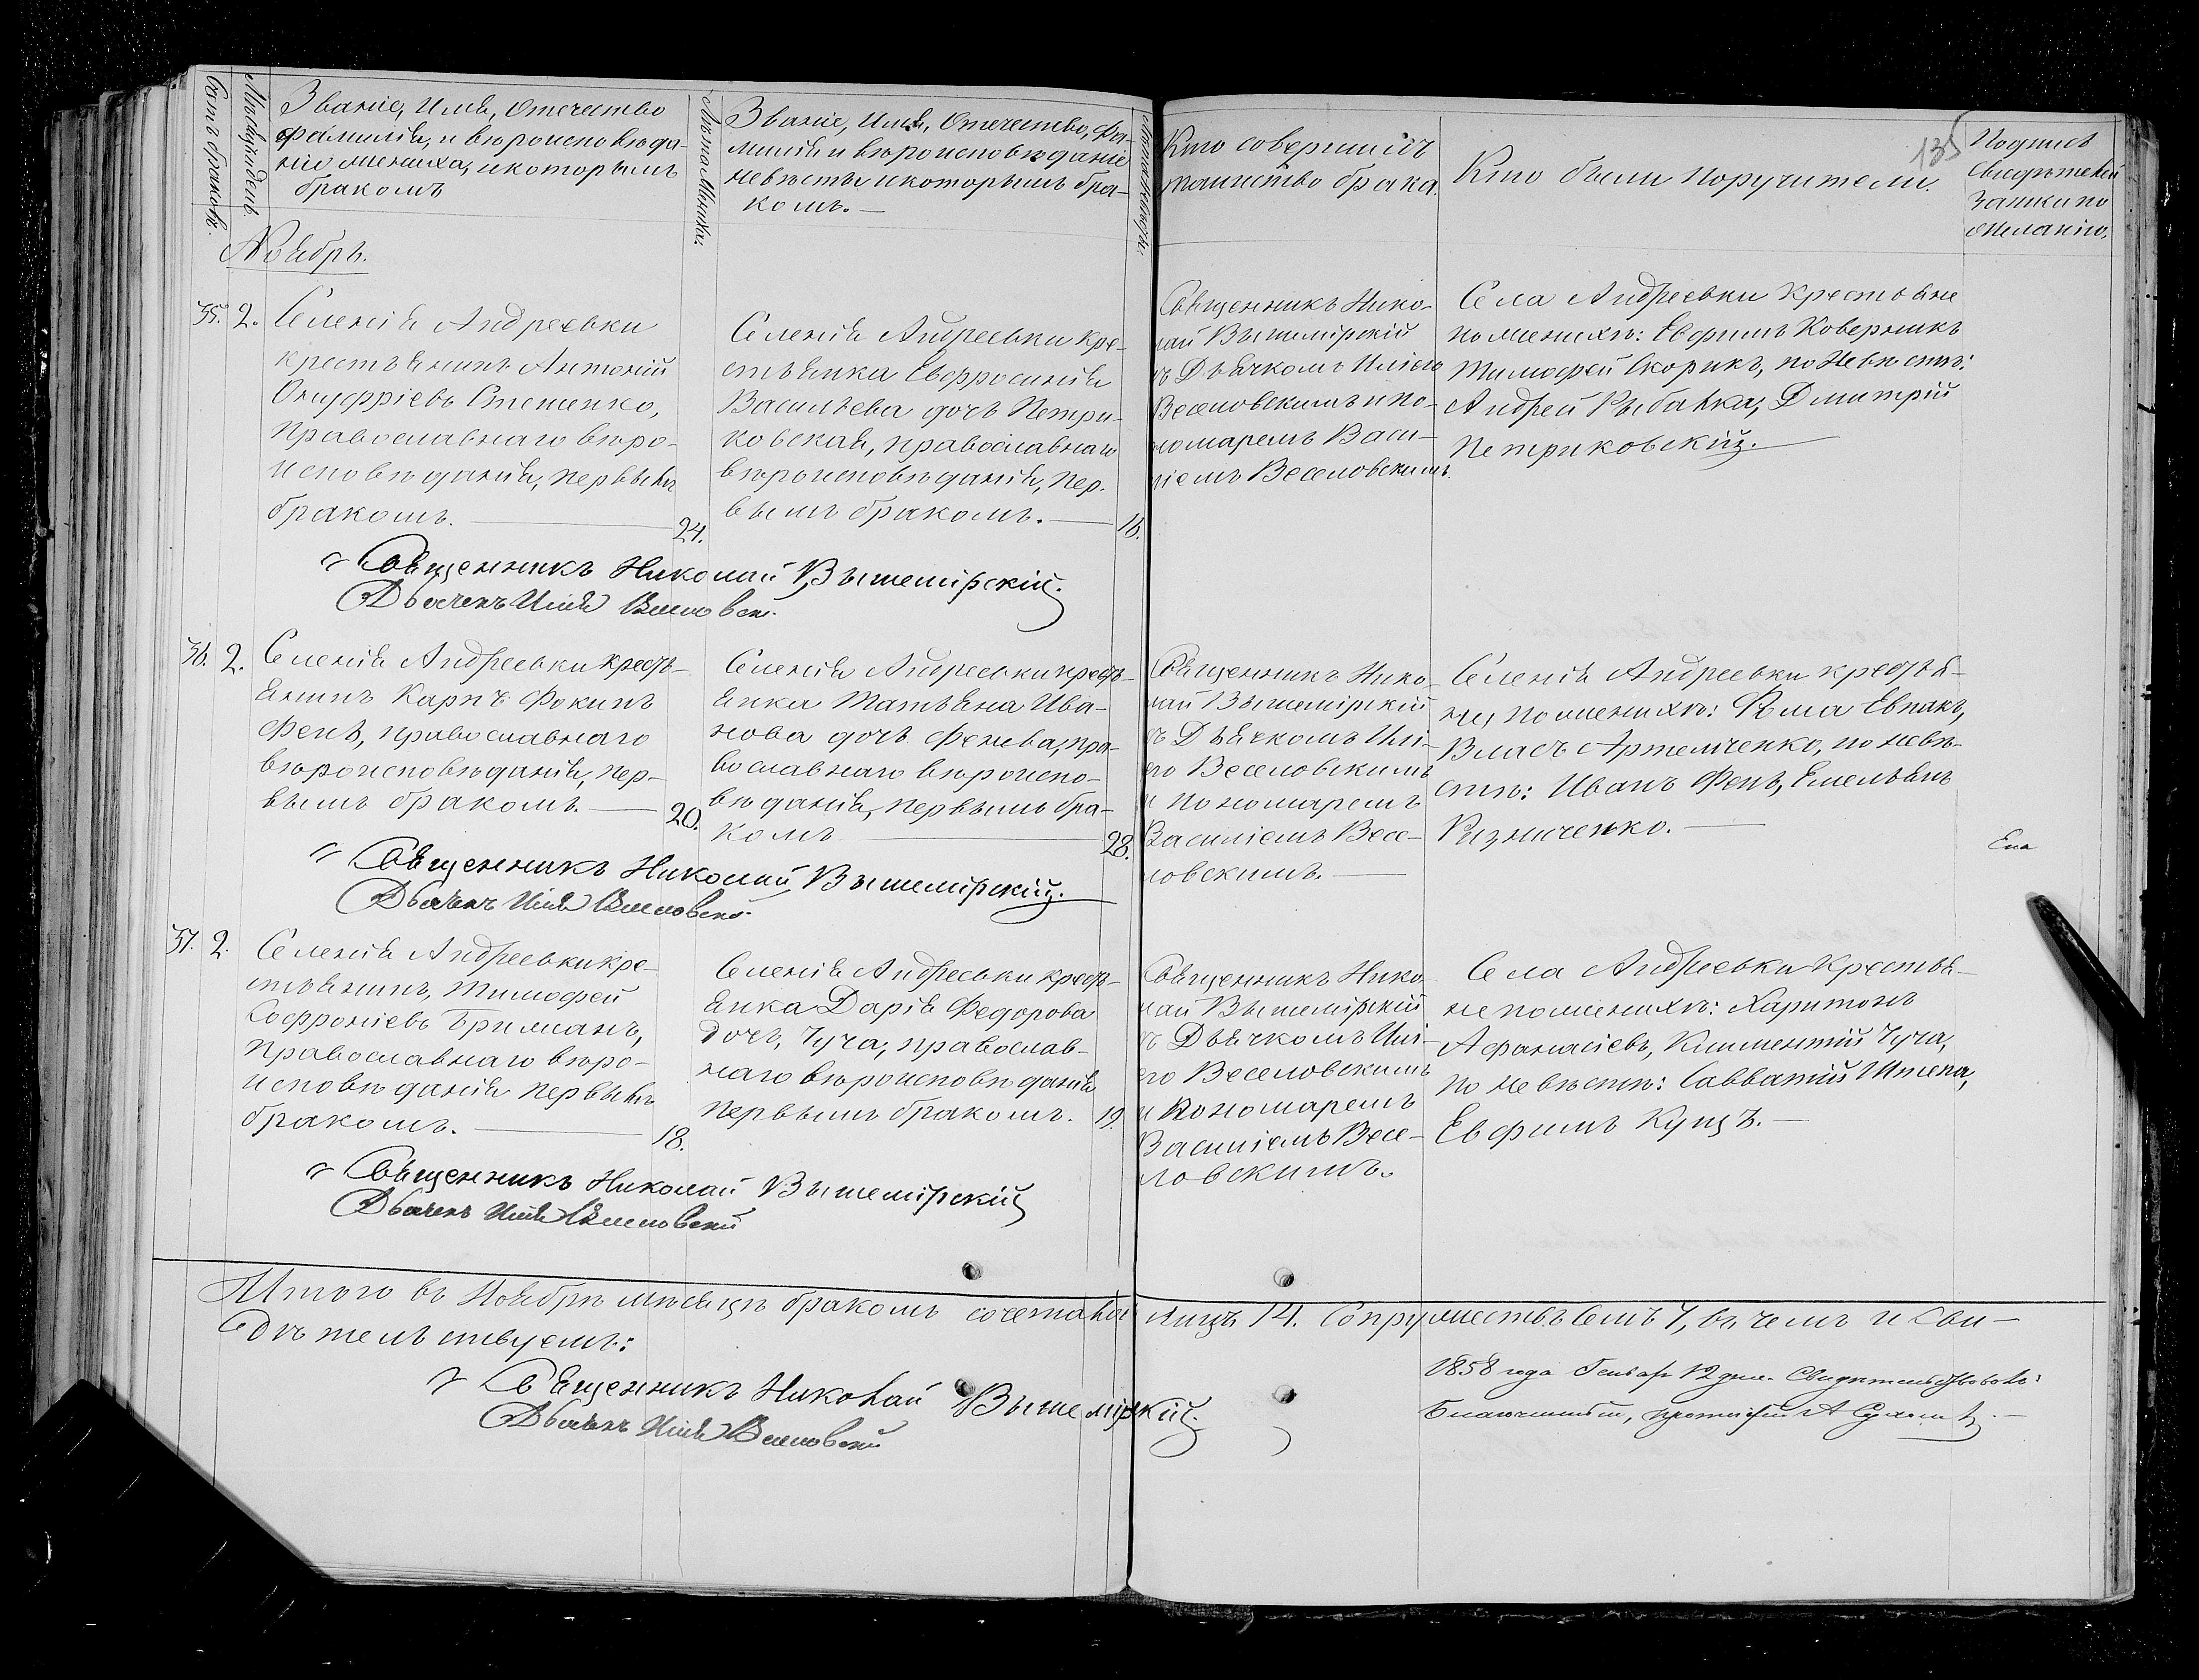 Счетъ браковъ.
Мѣсяцъ и день.
Званіе, Имя, Отечество
фамилія, и вѣроисповѣда-
ніе жениха, и которымъ
бракомъ
Лѣта Жениха.
Званіе, Имя, Отечество, фа-
милія и вѣроисповѣданіе
невѣсты и которымъ бра-
комъ. —
Лѣта Невѣсты.
Кто совершилъ
таинство брака.
Кто были поручители.
135
Подпись
Свидѣтелей
записки по
желанію.
Ноябрь.
35. 2.
Селенія Андреевки
крестьянинъ Антоній
Онуфріевъ Стеценко,
православнаго вѣро-
исповѣданія, первымъ
бракомъ. — 24.
Селенія Андреевки кре-
стьянка Евфросинія
Васильева дочь Петри-
ковская, православнаго
вѣроисповѣданія, пер-
вымъ бракомъ. — 18.
Священникъ Нико-
лай Вышемірскій
съ Дьячкомъ Иліею
Веселовскимъ и по-
номаремъ Васи-
ліемъ Веселовскимъ.
Села Андреевки крестьяне
по женихѣ: Евфимъ Коверникъ
Тимофей Скорикъ, по Невѣстѣ:
Андрей Рыбалка, Дмитрій
Петриковскій. —
Священникъ Николай Вышемірскій.
Дьячекъ Илія Веселовскі.
36. 2.
Селенія Андреевки кресть-
янинъ Карпъ Фокинъ
Фень, православнаго
вѣроисповѣданія, пер-
вымъ бракомъ. — 20.
Селенія Андреевки кресть-
янка Татьяна Ива-
нова дочь Фенева, пра-
вославнаго вѣроиспо-
вѣданія, первымъ бра-
комъ — 28.
Священникъ Нико-
лай Вышемірскій
съ Дьячкомъ Илі-
ею Веселовскимъ
и пономаремъ
Василіемъ Весе-
ловскимъ. —
Селенія Андреевки крестья-
не, по женихѣ: Фома Евпакъ,
Власъ Артемченко, по невѣ-
стѣ: Иванъ Фень, Емельянъ
Ризниченко. —
Священникъ Николай Вышемірскій.
Дьячекъ Илія Веселовскі.
37. 2.
Селенія Андреевки кре-
стьянинъ, Тимофей
Софроніевъ Бриманъ,
Православнаго вѣро-
исповѣданія первымъ
бракомъ. — 18.
Селенія Андреевки кресть-
янка Дарія Федорова
дочь, Чуча, православ-
наго вѣроисповѣданія
первымъ бракомъ. 19.
Священникъ Нико-
лай Вышемірскій
съ Дьячкомъ Илі-
ею Веселовскимъ
и Пономаремъ
Василіемъ Весе-
ловскимъ.
Села Андреевки крестья-
не по женихѣ: Харитонъ
Афанасіевъ, Климентій Чуча,
по невѣстѣ: Савватій Штепа,
Евфимъ Куцъ. —
Священникъ Николай Вышемірскій
Дьячекъ Илія Веселовскій
Итого въ Ноябрѣ мѣсяцѣ бракомъ сочеталось лицъ 14. Супружествъ Семь 7, въ чемъ и Сви-
дѣтельствуемъ:
Священникъ Николай Вышемірскій.
Дьячекъ Илія Веселовскій
1858 года Генваря 12 дня. Свидѣтельствовалъ:
Благочинный, протоіерей А